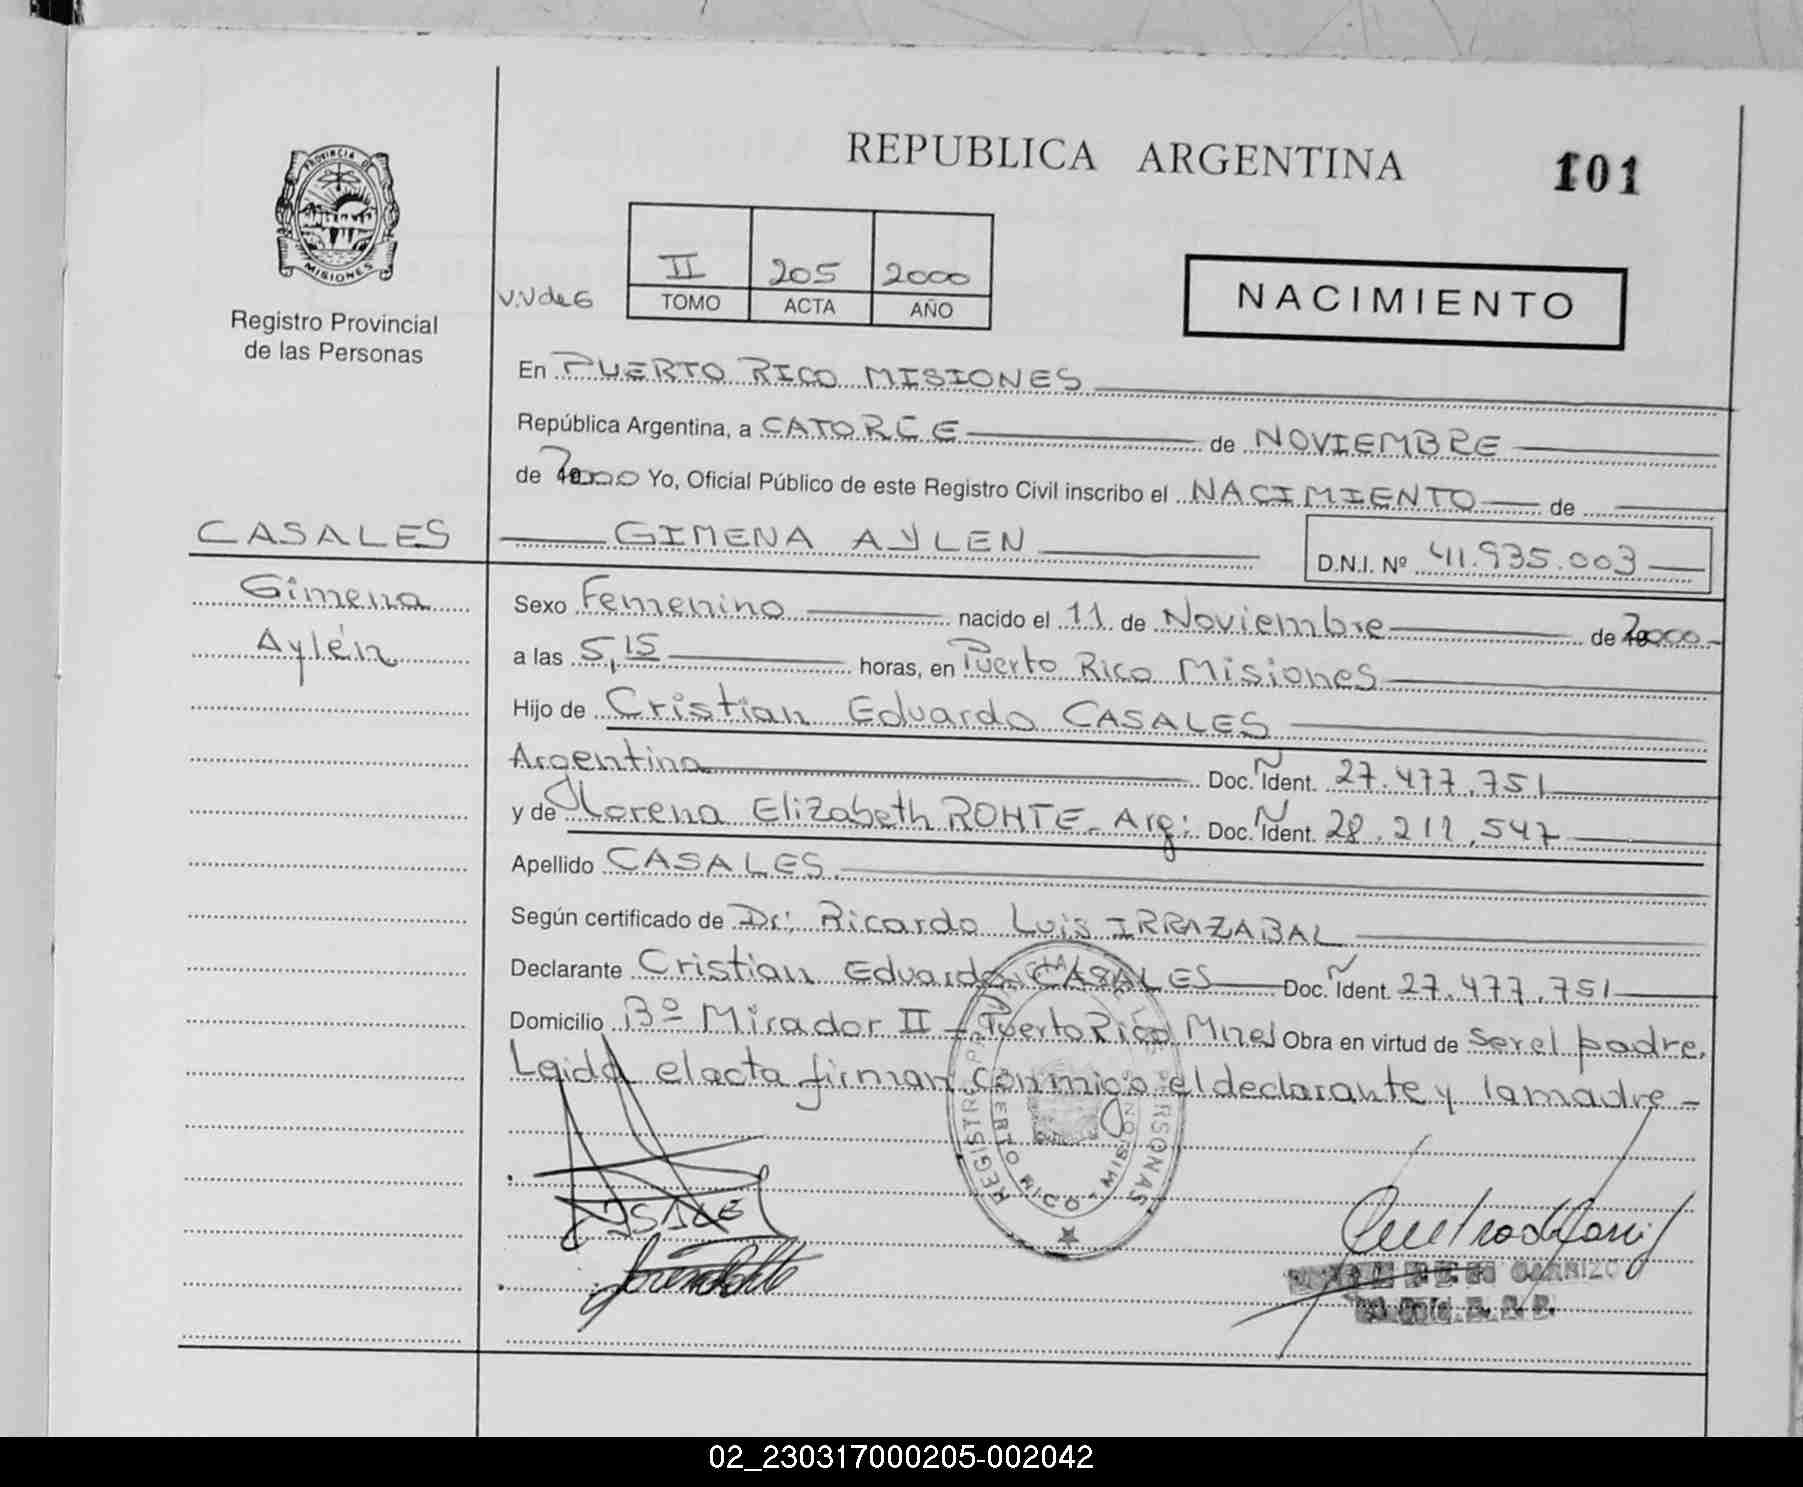 REPUBLICA ARGENTINA
101
PROVINCIA DE
MISIONES
Registro Provincial
de las Personas
V.V de G
II 205 2000
TOMO ACTA AÑO
NACIMIENTO
En PUERTO RICO MISIONES
República Argentina, a CATORCE de NOVIEMBRE
de 2000 Yo, Oficial Público de este Registro Civil inscribo el NACIMIENTO de
CASALES GIMENA AYLEN D.N.I. Nº 41.935.003
Gimena
Aylén
Sexo Femenino nacido el 11 de Noviembre de 2000
a las 5,15 horas, en Puerto Rico Misiones
Hijo de Cristian Eduardo CASALES
Argentina Doc. Ident. 27.477.751
y de Lorena Elizabeth ROHTE - Arg: Doc. Ident. 28.211.547
Apellido CASALES.
Según certificado de Dr: Ricardo Luis IRRAZABAL
Declarante Cristian Eduardo CASALES Doc. Ident. 27.477.751
Domicilio Bº Mirador II - Puerto Rico Mnes Obra en virtud de ser el padre.
Leida el acta firman conmigo el declarante y la madre -
REGISTRO PROVINCIAL DE LAS PERSONAS
PUERTO RICO - MISIONES
02_230317000205-002042